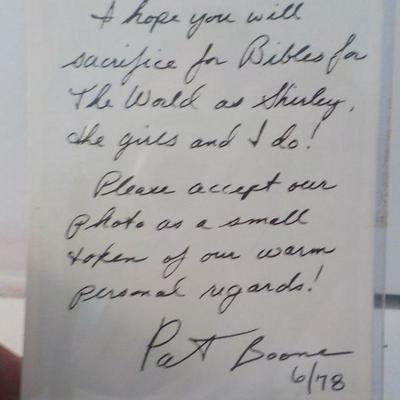 I hope you will
sacrifice for Bibles for
The World as Shirley,
the girls and I do!
Please accept our
photo as a small
token of our warm
personal regards!
Pat Boone
6/78